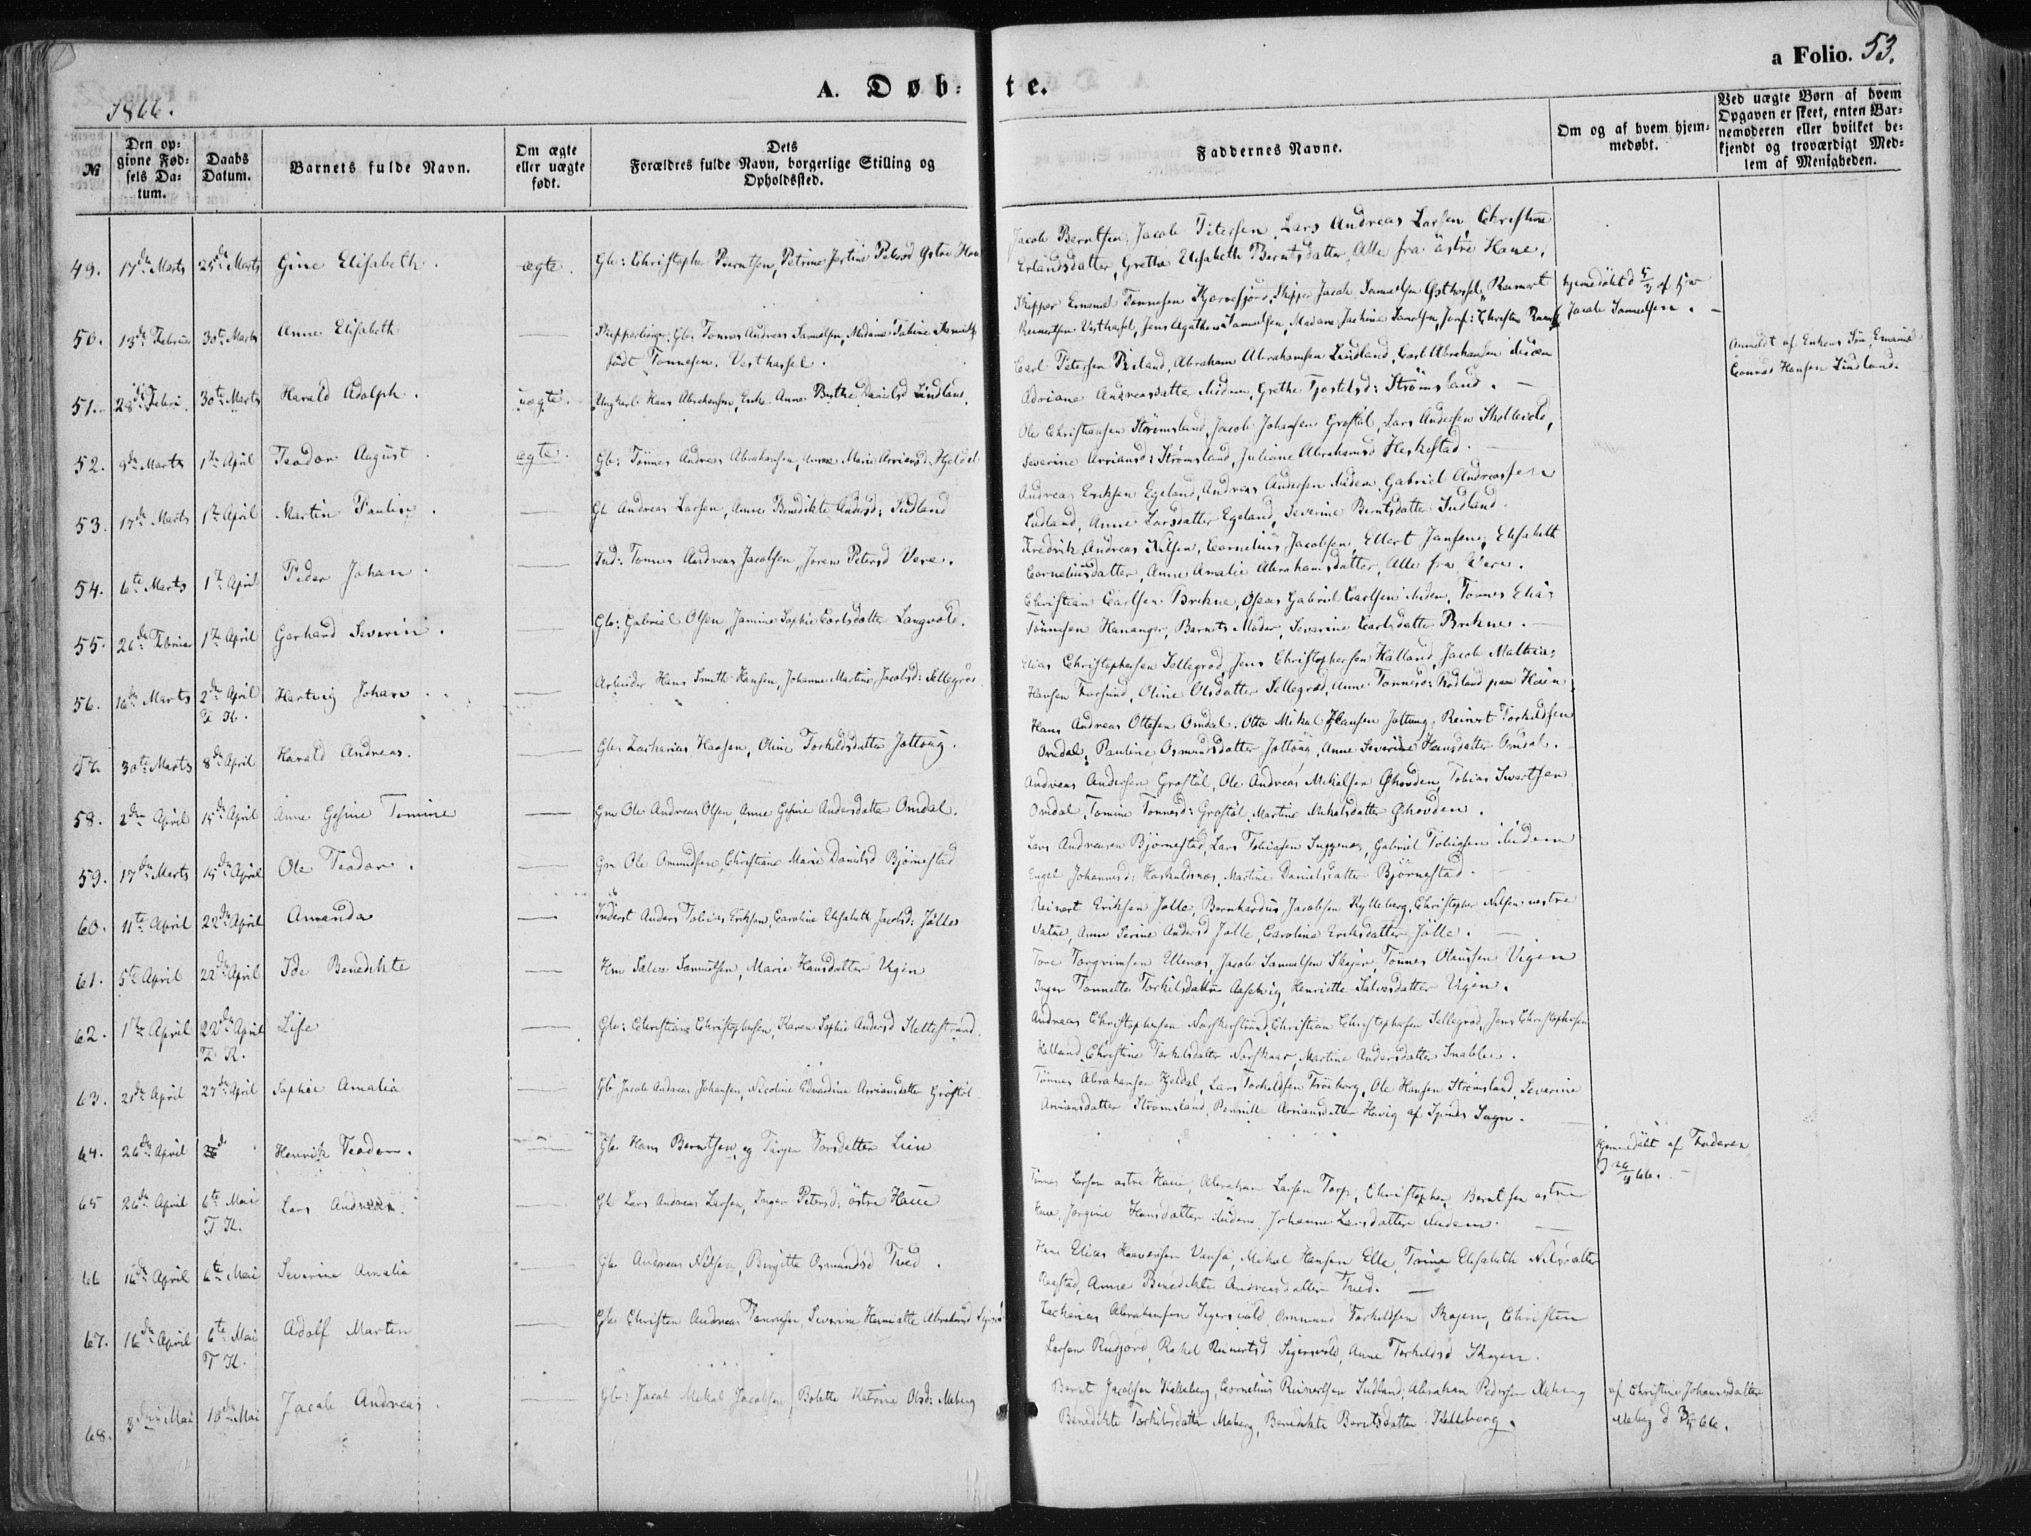 a Folio. 53.
A. Døb- te.
1866.
№
Den opgivne Fødsels Datum.
Daabs Datum.
Barnets fulde Navn.
Om ægte eller uægte født.
Dets Forældres fulde Navn, borgerlige Stilling og Opholdssted.
Faddernes Navne.
Om og af hvem hjemmedøbt.
Ved uægte Børn af hvem Opgaven er skeet, enten Barnemoderen eller hvilket bekjendt og troværdigt Medlem af Menigheden.
49. 17de Marts 25de Marts Gine Elisabeth. ægte. Gb: Christopher Berntsen, Petrine Jertine Petersd Østre Haue
Jacob Berntsen, Jacob Petersen, Lars Andreas Larsen, Christine
Erlandsdatter, Grethe Elisabeth Berntsdatter, Alle fra østre Haue.
50. 13de Februar 30te Marts Anne Elisabeth — Gbr Tønnes Andreas Samuelsen, Madame Tabine
født Tønnesen. Vesthassel.
Skipper Emanuel Tønnesen Kjørrefjord, Skipper Jacob Samuelsen Østhassel, Reinert
Reinertsen Vesthasel, Jens Agathon Samuelsen, Madame Jachine Samuelsen, Jomf: Christine
hjemedøbt d 5/3 af
Jacob Samuelsen. —
51. 28de Febri. 30te Marts Harald Adolph. uægte. Ungkarl Hans Abrahamsen, Enke Anne Berthe Danielsd Lindland.
Carl Petersen Briland, Abraham Abrahamsen Lindland, Carl Abrahamsen
Adriane Andreasdatter ibidem, Grethe Tjostelsd: Strømsland. —
Anmeldt af Enkens Søn, Emanuel
Conrad Hansen Lindland.
52. 9de Marts 1te April Teodor August. ægte. Gb: Tønnes Andreas Abrahamsen, Anne Marie Arriansd: Hjeldal
Ole Christiansen Strømsland, Jacob Johansen Grostøl, Lars Andersen Skollevold,
Severine Arriansd: Strømsland, Juliane Abrahamsd Heskestad. —
53. 17de Marts 1te April Martin Pauline. — Gb Andreas Larsen, Anne Benedikte Andersd: Indland
Andreas Eriksen Egeland, Andreas Andersen ibidem, Gabriel Andreassen
Indland, Anne Larsdatter Egeland, Severine Berntsdatter Indland.
54. 6te Marts 1te April Peder Johan. — Ind: Tønnes Andreas Jacobsen, Joren Petersd Vere.
Fredrik Andreas Nilsen, Cornelius Jacobsen, Ellert Jansen, Elisabeth
Corneliusdatter, Anne Amalie Abrahamsdatter, Alle fra Vere.
55. 26de Februar 1te April Gerhard Severin. — Gbr: Gabriel Olsen, Jamine Sophie Carlsdatter Langvold.
Christian Carlsen Brekne, Osear Gabriel Carlsen ibidem, Tønnes Elias
Tønnesen Hananger, Barnets Moder, Severine Carlsdatter Brekne. —
56. 16de Marts 2de April T. K. Hartvig Johan. — Arbeider Hans Smith Hansen, Johanne Martine Jacobsd: Sellegrod
Elias Christophersen Sellegrod, Jens Christophersen Halland, Jacob Mathias
Hansen Farsund, Oline Olsdatter Sellegrod, Anne Tønnesd: Rødland paa
57. 30te Marts 8de April Harald Andreas. — Gbr Zacharias Hansen, Oline Torkildsdatter Jøttoug.
Hans Andreas Ottesen Omdal, Otto Mikal Hansen Jøttoug, Reinert Torkildsen
Omdal, Pauline Osmundsdatter Jøttoug, Anne Severine Hansdatter Omdal.
58. 2den April 15de April Anne Gesine Tomine — Gm Ole Andreas Olsen, Anne Gesine Andersdatter Omdal.
Andreas Andersen Grostøl, Ole Andreas Mikalsen Øhovden, Tobias Sivertsen
Omdal, Tomine Tønnesd: Grostøl, Martine Mikalsdatter Øhovden.
59. 17de Marts 15de April Ole Teodor. — Gm Ole Omundsen, Christiane Marie Danielsd Bjørnestad
Lars Andreasen Bjørnestad, Lars Tobiasen Suggenes, Gabriel Tobiasen ibidem
Engel Johannesd: Haskuldsnes, Martine Danielsdatter Bjørnestad. —
60. 11te April 22de April Amanda — Inderst Anders Tobias Eriksen, Caroline Elisabeth Jacobsd: Jølle
Reinert Eriksen Jølle, Bernhardus Jacobsen Kylleberg, Christopher Nilsen vestre
Vatne, Anne Serine Andersd Jølle, Caroline Eriksdatter Jølle. —
61. 5te April 22de April Ide Benedikte — Hm Salve Samuelsen, Marie Hansdatter Vigen
Tore Torgrimsen Ellenes, Jacob Samuelsen Skajer, Tønnes Olausen Vigen
Inger Tonnette Torkilsdatter Aaselvig, Henriette Salvesdatter Vigen.
62. 1te April 22de April T. K. Lise — Gbr: Christian Christophersen, Karen Sophie Andersd Slettestrand.
Andreas Christophersen Norskerstrand, Christian Christophersen Sellegrod, Jens Christophersen
Halland, Christine Torkilsdatter Norskaar, Martine Andersdatter Snabbe.
63. 21de April 27de April Sophie Amalia — Gb Jacob Andreas Johansen, Nicoline Edvardine Arriansdatter Grostøl
Tønnes Abrahamsen Hjeldal, Lars Torkeldsen Frøiborg, Ole Hansen Strømsland, Severine
Arriansdatter Strømsland, Pernille Arriansdatter Havig af Spinds Sogn. —
64. 26de April Henrik Teodor. — Gb. Hans Berntsen, og Turger Torsdatter Lien
hjemmedøbt af Faderen
65 26de April 6te Mai T. K. Lars Andreas. — Gb Lars Andreas Larsen, Inger Petersd: østre Haue
Tønnes Larsen østre Haue, Abraham Larsen Torp, Christopher Berntsen østre
Haue, Jorgine Hansdatter ibidem, Johanne Larsdatter ibidem. —
66 16de April 6te Mai Severine Amalia — Gb. Andreas Nilsen, Birgitte Osmundsd Tued.
Hans Elias Haavorsen Vansø, Mikal Hansen Elle, Trine Elisabeth Nilsdatter
Anne Benedikte Andreasdatter Tued. —
67. 16de April 6te Mai T. K. Adolf Marten — Gb. Christen Andreas Tønnesen Severine Henriette Abrahamsd
Zacharias Abrahamsen Sigersvold, Ommund Torkeldsen Skagen, Christen
Larsen Rudjord, Rakel Reinertsd Sigersvold, Anne Torkildsd Skagen.
68. 3die Mai 10de Mai Jacob Andreas. — Gb: Jacob Mikal Jacobsen, Bolette Katrine Olsd: Meberg
Bernt Jacobsen Kalleberg, Cornelius Reinertsen Indland, Abraham Pedersen Meberg
Benedikte Torkildsdatter Meberg, Benedikte Berntsdatter Kalleberg.
af Christine Johannesdatter
Meberg d 3/5 66.